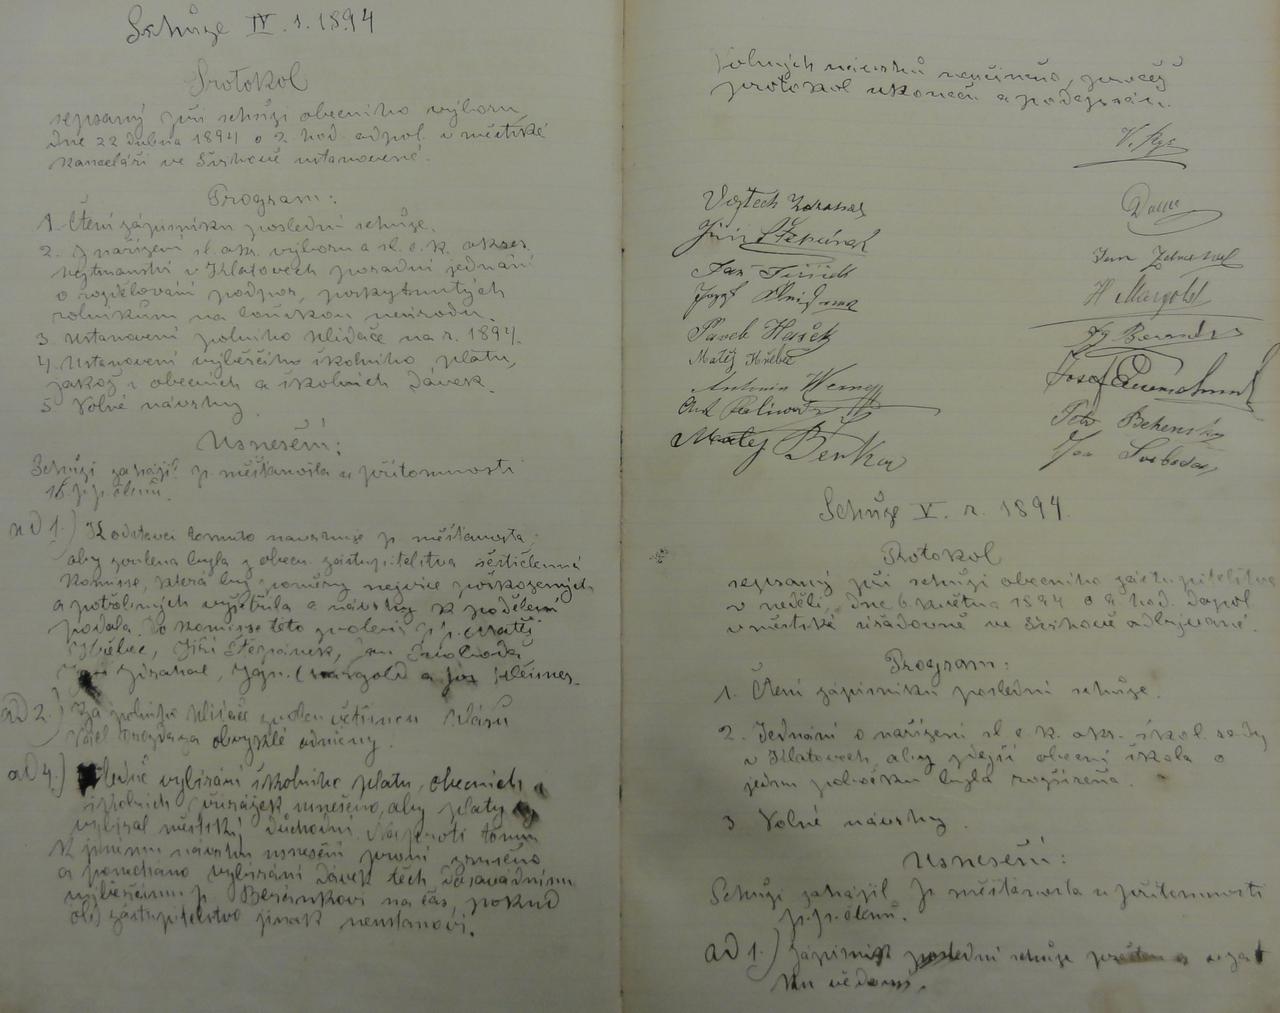 Schůze IV. r. 1894
Protokol
sepsaný při schůzi obecního výboru
dne 22 dubna 1894 o 2. hod. odpol. v městské
kanceláři ve Švihově ustanovené.
Program:
1. Čtení zápisníku poslední schůze.
2. Z nařízení sl. okr. výboru a sl. c. k. okres.
hejtmanství v Klatovech poradní jednání
o rozdělování podpor, poskytnutých
rolníkům na loňskou neúrodu.
3 Ustanovení polního hlídače na r. 1894.
4. Ustanovení výběrčího školního platu,
jakož i obecních a školních dávek.
5. Volné návrhy.
Usnešení:
Schůzi zahájil p. měšťanosta u přítomnosti
p. p. členů.
ad 1.) K odstavci tomuto navrhuje p. měšťanosta
aby zvolena byla z obecn. zastupitelstva šestičlenná
komisse, která by poměry nejvíce poškozených
a potřebných vyšetřila a návrhy k podělení
podala. Do komisse této zvoleni p. p. Matěj
Hřebec, Jiří Štěpánek, Jan Svoboda
Ign. Margold a Jos.
ad 2.) Za polního hlídače zvolen většinou hlasů
za obvyklé odměny.
ad 4.) Ohledně vybírání školního platu, obecních a
školních přirážek usnešeno, aby platy ty
vybíral městský důchodní. Naproti tomu
k jinému návrhu usnešení první zrušeno
a ponecháno vybírání dávek těch dosavadnímu
výběrčímu p. Beránkovi na čas, pokud
ob. zastupitelstvo jinak neustanoví.
Volných návrhů neučiněno, pročež
protokol ukončen a podepsán.
V. Rys
Vojtech
Jiří Štěpánek
Jan
Josef
Pavel Hašek
Matěj Hřebec
Antonín Werner
Ant.
Matěj Berka
Jan
H Margold
Josef
Petr Behenský
Jan Svoboda
Schůze V. r. 1894.
Protokol
sepsaný při schůzi obecního zastupitelstva
v neděli, dne 6. května 1894 o 9. hod. dopol.
v městské úřadovně ve Švihově odbývané.
Program:
1. Čtení zápisníku poslední schůze.
2. Jednání o nařízení sl. c. k. okr. škol. rady
v Klatovech, aby zdejší obecní škola o
jednu pobočku byla rozšířena.
3 Volné návrhy.
Usnešení:
Schůzi zahájil p. měšťanosta u přítomnosti
p. p. členů.
ad 1.) Zápisník poslední schůze přečten a vzat
ku vědomí.